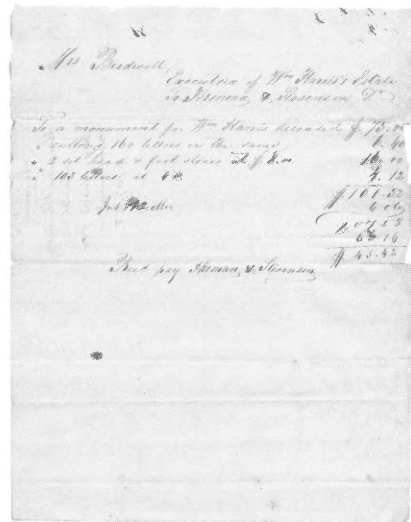 Mrs Birdwell,
Executrix of Wm Harris's Estate
To & Dr
To a monument for Wm Harris deceased $ 75.00
" cutting 160 letters on the same 6.40
" 2 set head & foot stones at $ 8.00 16.00
" 103 letters at 4 4.12
$ 101.52
6 06
107.58
$ 45.42
Recd pay & Stevenson